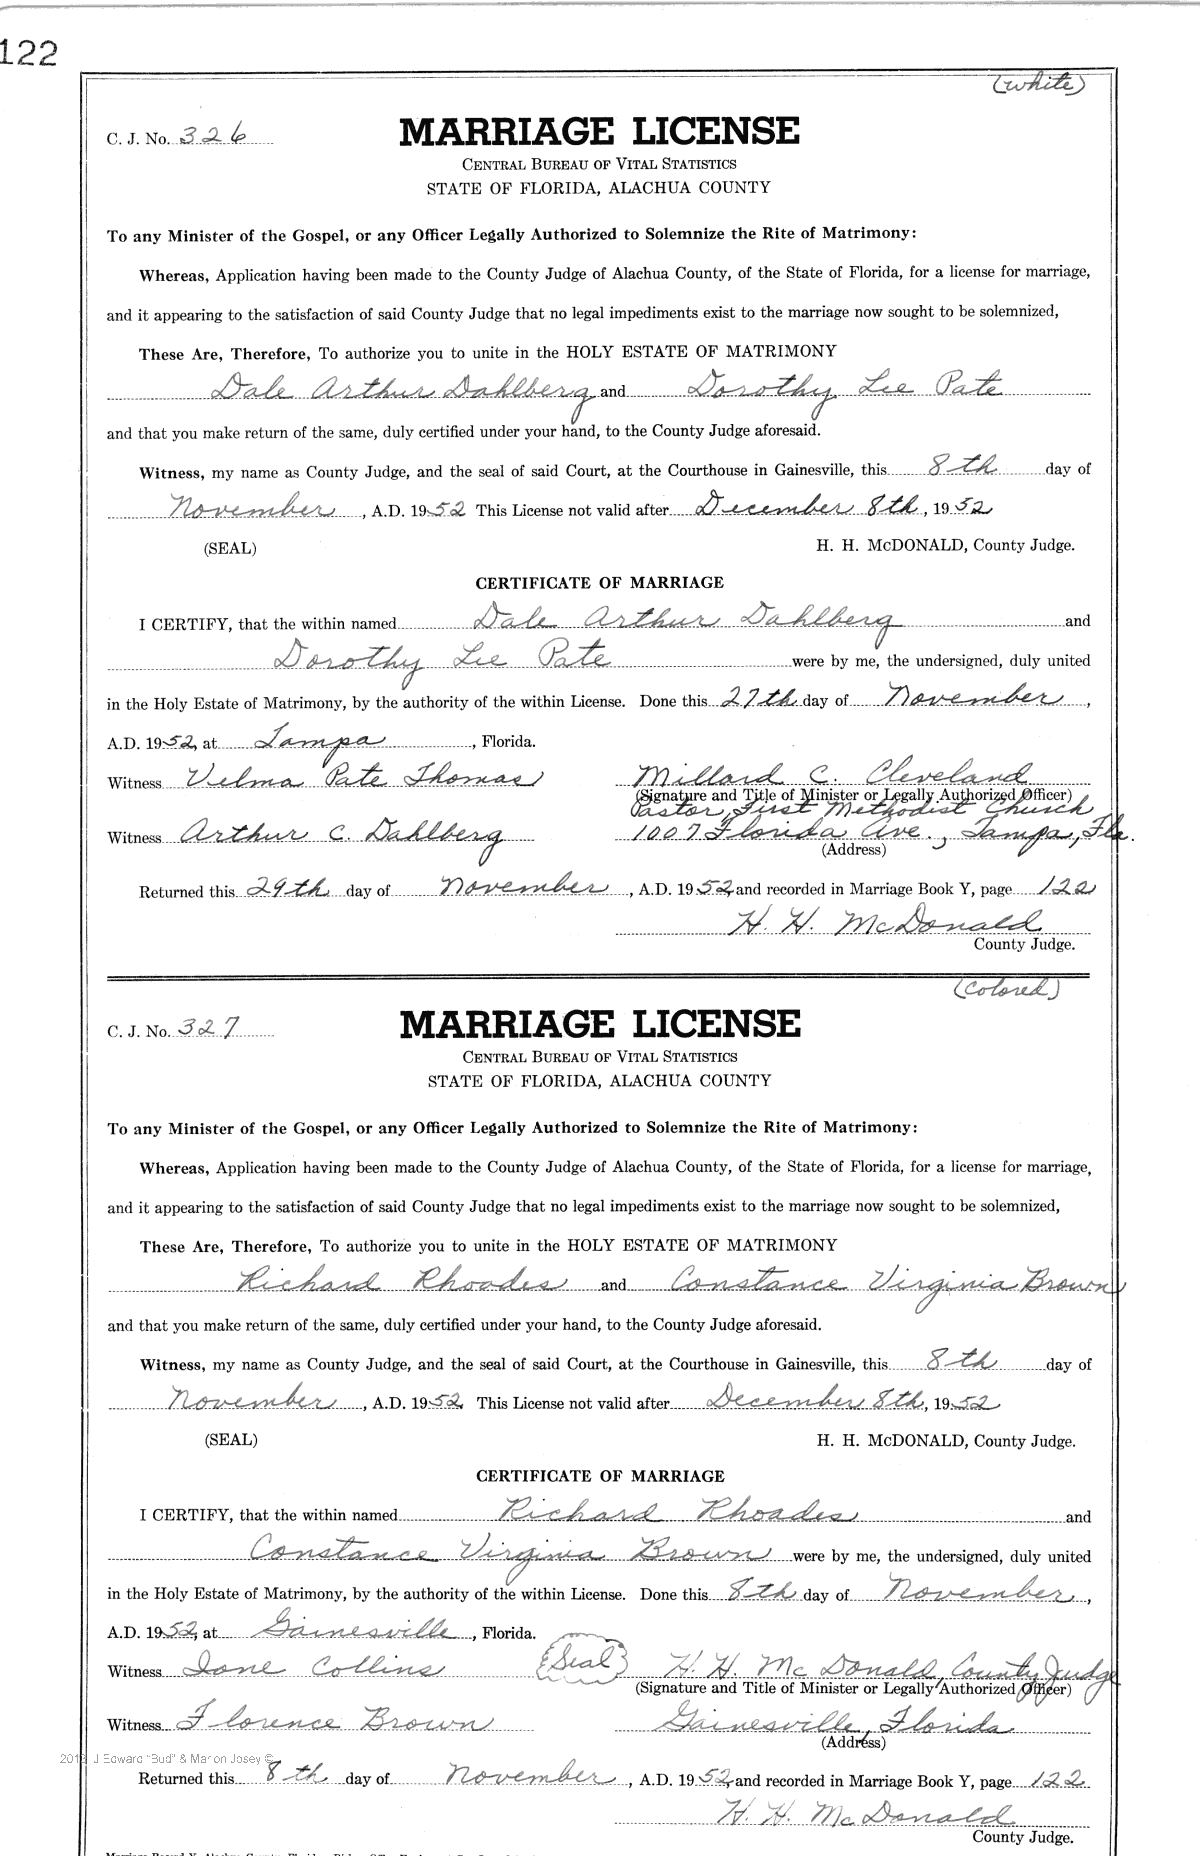 122
(white)
C. J. No. 326 MARRIAGE LICENSE
CENTRAL BUREAU OF VITAL STATISTICS
STATE OF FLORIDA, ALACHUA COUNTY
To any Minister of the Gospel, or any Officer Legally Authorized to Solemnize the Rite of Matrimony:
Whereas, Application having been made to the County Judge of Alachua County, of the State of Florida, for a license for marriage,
and it appearing to the satisfaction of said County Judge that no legal impediments exist to the marriage now sought to be solemnized,
These Are, Therefore, To authorize you to unite in the HOLY ESTATE OF MATRIMONY
Dale Arthur Dahlberg and Dorothy Lee Pate
and that you make return of the same, duly certified under your hand, to the County Judge aforesaid.
Witness, my name as County Judge, and the seal of said Court, at the Courthouse in Gainesville, this 8th day of
November, A.D. 1952 This License not valid after December 8th, 1952
(SEAL) H. H. McDONALD, County Judge.
CERTIFICATE OF MARRIAGE
I CERTIFY, that the within named Dale Arthur Dahlberg and
Dorothy Lee Pate were by me, the undersigned, duly united
in the Holy Estate of Matrimony, by the authority of the within License. Done this 27th day of November,
A.D. 1952, at Tampa, Florida.
Witness Velma Pate Thomas Millard C. Cleveland
(Signature and Title of Minister or Legally Authorized Officer)
Pastor, First Methodist Church
Witness Arthur C. Dahlberg 1007 Florida Ave., Tampa, Fla.
(Address)
Returned this 29th day of November, A.D. 1952, and recorded in Marriage Book Y, page 122
H. H. McDonald
County Judge.
(colored)
C. J. No. 327 MARRIAGE LICENSE
CENTRAL BUREAU OF VITAL STATISTICS
STATE OF FLORIDA, ALACHUA COUNTY
To any Minister of the Gospel, or any Officer Legally Authorized to Solemnize the Rite of Matrimony:
Whereas, Application having been made to the County Judge of Alachua County, of the State of Florida, for a license for marriage,
and it appearing to the satisfaction of said County Judge that no legal impediments exist to the marriage now sought to be solemnized,
These Are, Therefore, To authorize you to unite in the HOLY ESTATE OF MATRIMONY
Richard Rhoades and Constance Virginia Brown
and that you make return of the same, duly certified under your hand, to the County Judge aforesaid.
Witness, my name as County Judge, and the seal of said Court, at the Courthouse in Gainesville, this 8th day of
November, A.D. 1952 This License not valid after December 8th, 1952
(SEAL) H. H. McDONALD, County Judge.
CERTIFICATE OF MARRIAGE
I CERTIFY, that the within named Richard Rhoades and
Constance Virginia Brown were by me, the undersigned, duly united
in the Holy Estate of Matrimony, by the authority of the within License. Done this 8th day of November,
A.D. 1952, at Gainesville, Florida.
Witness Ione Collins (Seal) H. H. McDonald, County Judge
(Signature and Title of Minister or Legally Authorized Officer)
Witness Florence Brown Gainesville, Florida
(Address)
J Edward "Bud" & Marion Josey ©
Returned this 8th day of November, A.D. 1952, and recorded in Marriage Book Y, page 122
H. H. McDonald
County Judge.